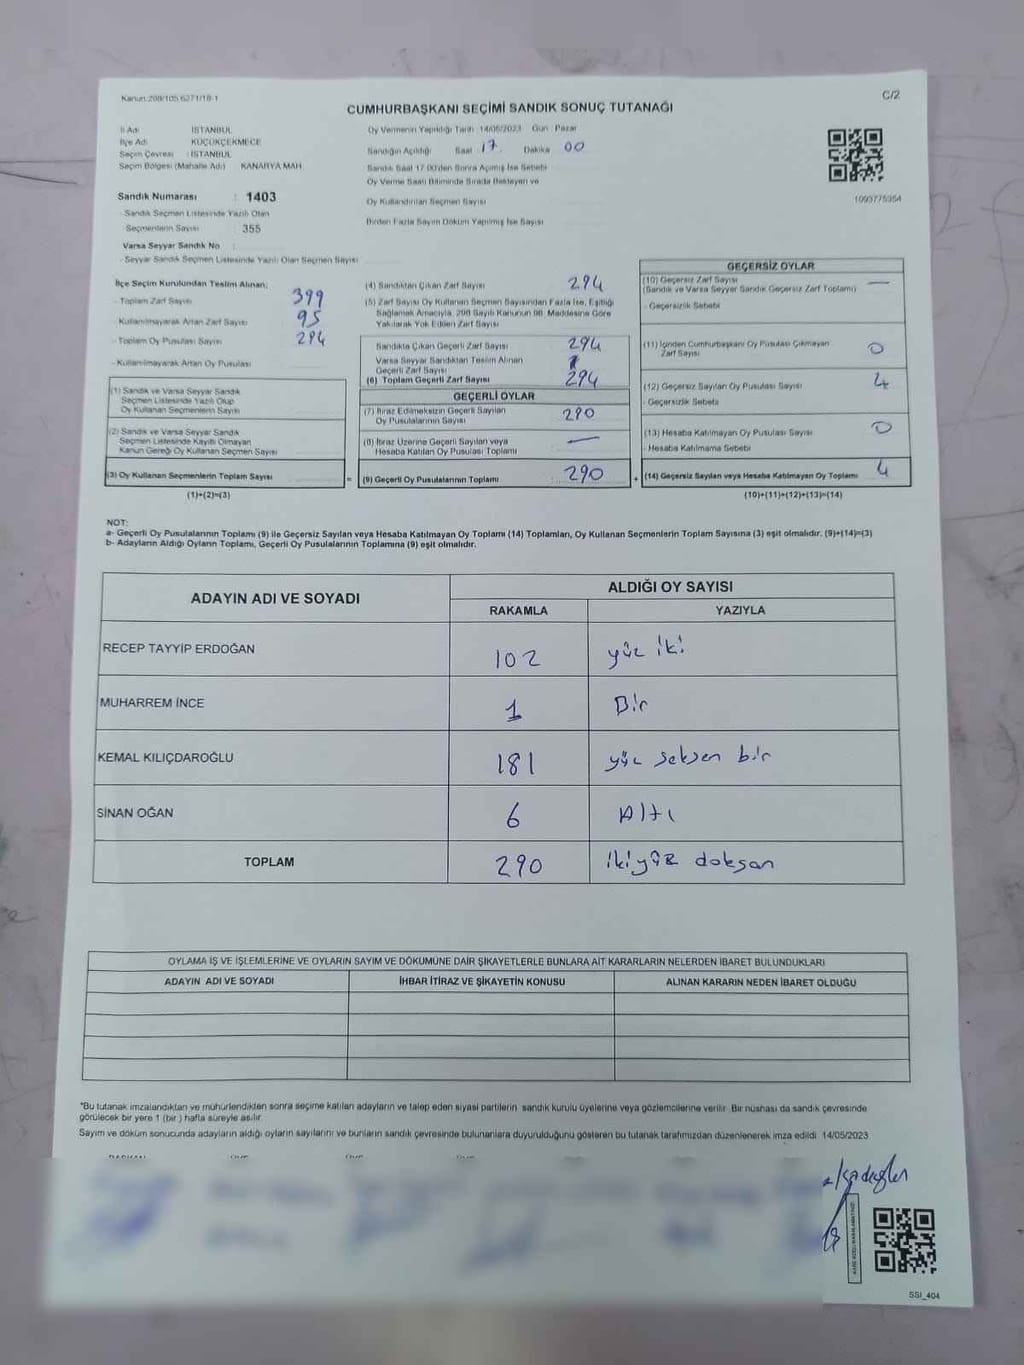 Kanun:298/105,6271/18-1
C/2
CUMHURBAŞKANI SEÇİMİ SANDIK SONUÇ TUTANAĞI
İl Adı İSTANBUL
İlçe Adı KÜÇÜKÇEKMECE
Seçim Çevresi : İSTANBUL
Seçim Bölgesi (Mahalle Adı) KANARYA MAH
Sandık Numarası : 1403
- Sandık Seçmen Listesinde Yazılı Olan
Seçmenlerin Sayısı 355
Varsa Seyyar Sandık No :
- Seyyar Sandık Seçmen Listesinde Yazılı Olan Seçmen Sayısı
Oy Vermenin Yapıldığı Tarih 14/05/2023 Gün Pazar
Sandığın Açıldığı Saat 17. Dakika 00
Sandık Saat 17.00'den Sonra Açılmış İse Sebebi
Oy Verme Saati Bitiminde Sırada Bekleyen ve
Oy Kullandırılan Seçmen Sayısı
Birden Fazla Sayım Döküm Yapılmış İse Sayısı
1093775354
İlçe Seçim Kurulundan Teslim Alınan;
- Toplam Zarf Sayısı 399
- Kullanılmayarak Artan Zarf Sayısı 95
- Toplam Oy Pusulası Sayısı 294
- Kullanılmayarak Artan Oy Pusulası
(1) Sandık ve Varsa Seyyar Sandık
Seçmen Listesinde Yazılı Olup
Oy Kullanan Seçmenlerin Sayısı
(2) Sandık ve Varsa Seyyar Sandık
Seçmen Listesinde Kayıtlı Olmayan
Kanun Gereği Oy Kullanan Seçmen Sayısı
(3) Oy Kullanan Seçmenlerin Toplam Sayısı
(1)+(2)=(3)
(4) Sandıktan Çıkan Zarf Sayısı 294
(5) Zarf Sayısı Oy Kullanan Seçmen Sayısından Fazla İse, Eşitliği
Sağlamak Amacıyla, 298 Sayılı Kanunun 98. Maddesine Göre
Yakılarak Yok Edilen Zarf Sayısı
Sandıkta Çıkan Geçerli Zarf Sayısı 294
Varsa Seyyar Sandıktan Teslim Alınan
Geçerli Zarf Sayısı
(6) Toplam Geçerli Zarf Sayısı 294
GEÇERLİ OYLAR
(7) İtiraz Edilmeksizin Geçerli Sayılan
Oy Pusulalarının Sayısı 290
(8) İtiraz Üzerine Geçerli Sayılan veya
Hesaba Katılan Oy Pusulası Toplamı —
= (9) Geçerli Oy Pusulalarının Toplamı 290
GEÇERSİZ OYLAR
(10) Geçersiz Zarf Sayısı —
(Sandık ve Varsa Seyyar Sandık Geçersiz Zarf Toplamı)
- Geçersizlik Sebebi
(11) İçinden Cumhurbaşkanı Oy Pusulası Çıkmayan
Zarf Sayısı 0
(12) Geçersiz Sayılan Oy Pusulası Sayısı 4
- Geçersizlik Sebebi
(13) Hesaba Katılmayan Oy Pusulası Sayısı 0
- Hesaba Katılmama Sebebi
+ (14) Geçersiz Sayılan veya Hesaba Katılmayan Oy Toplamı 4
(10)+(11)+(12)+(13)=(14)
NOT:
a- Geçerli Oy Pusulalarının Toplamı (9) ile Geçersiz Sayılan veya Hesaba Katılmayan Oy Toplamı (14) Toplamları, Oy Kullanan Seçmenlerin Toplam Sayısına (3) eşit olmalıdır. (9)+(14)=(3)
b- Adayların Aldığı Oyların Toplamı, Geçerli Oy Pusulalarının Toplamına (9) eşit olmalıdır.
ADAYIN ADI VE SOYADI
ALDIĞI OY SAYISI
RAKAMLA YAZIYLA
RECEP TAYYİP ERDOĞAN 102 yüz iki
MUHARREM İNCE 1 Bir
KEMAL KILIÇDAROĞLU 181 yüz seksen bir
SİNAN OĞAN 6 Altı
TOPLAM 290 ikiyüz doksan
OYLAMA İŞ VE İŞLEMLERİNE VE OYLARIN SAYIM VE DÖKÜMÜNE DAİR ŞİKAYETLERLE BUNLARA AİT KARARLARIN NELERDEN İBARET BULUNDUKLARI
ADAYIN ADI VE SOYADI İHBAR İTİRAZ VE ŞİKAYETİN KONUSU ALINAN KARARIN NEDEN İBARET OLDUĞU
*Bu tutanak imzalandıktan ve mühürlendikten sonra seçime katılan adayların ve talep eden siyasi partilerin sandık kurulu üyelerine veya gözlemcilerine verilir. Bir nüshası da sandık çevresinde
görülecek bir yere 1 (bir) hafta süreyle asılır.
Sayım ve döküm sonucunda adayların aldığı oyların sayılarını ve bunların sandık çevresinde bulunanlara duyurulduğunu gösteren bu tutanak tarafımızdan düzenlenerek imza edildi. 14/05/2023
SSI_404